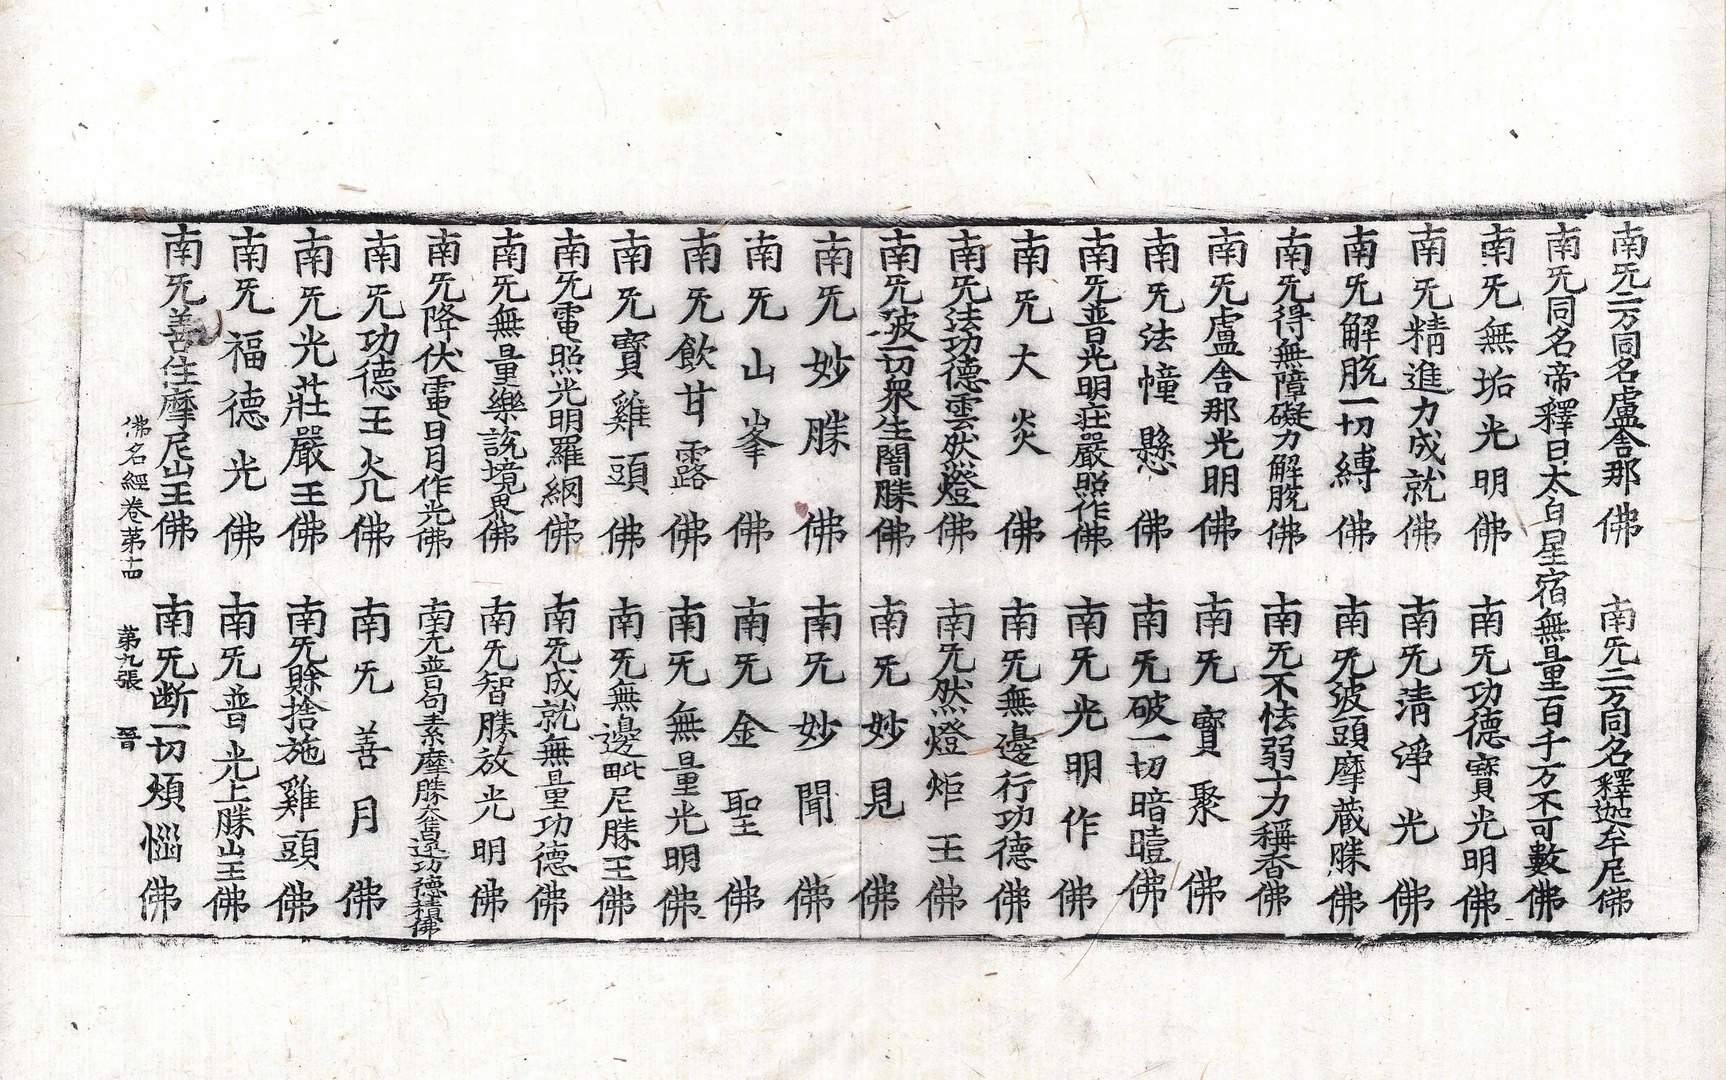 南无二万同名盧舍那佛　南无二万同名釋迦牟尼佛
南无同名帝釋日太白星宿無量百千万不可數佛
南无無垢光明佛　南无功德寶光明佛
南无精進力成就佛　南无清淨光佛
南无解脫一切縛佛　南无波頭摩藏勝佛
南无得無障礙力解脫佛　南无不怯弱十力稱香佛
南无盧舍那光明佛　南无寶聚佛
南无法幢懸佛　南无破一切暗曀佛
南无普光明莊嚴照作佛　南无光明作佛
南无大炎佛　南无無邊行功德佛
南无法功德雲然燈佛　南无然燈炬王佛
南无破一切衆生闇勝佛　南无妙見佛
南无妙勝佛　南无妙聞佛
南无山峯佛　南无金聖佛
南无飲甘露佛　南无無量光明佛
南无寶雞頭佛　南无無邊毗尼勝王佛
南无電照光明羅網佛　南无成就無量功德佛
南无無量樂說境界佛　南无智勝放光明佛
南无降伏電日月作光佛　南无普句素摩勝奮迅功德積佛
南无功德王炎佛　南无善月佛
南无光莊嚴王佛　南无賖捨施雞頭佛
南无福德光佛　南无普光上勝山王佛
南无善住摩尼山王佛　南无断一切煩惱佛
佛名經卷第十四　第九張　晉